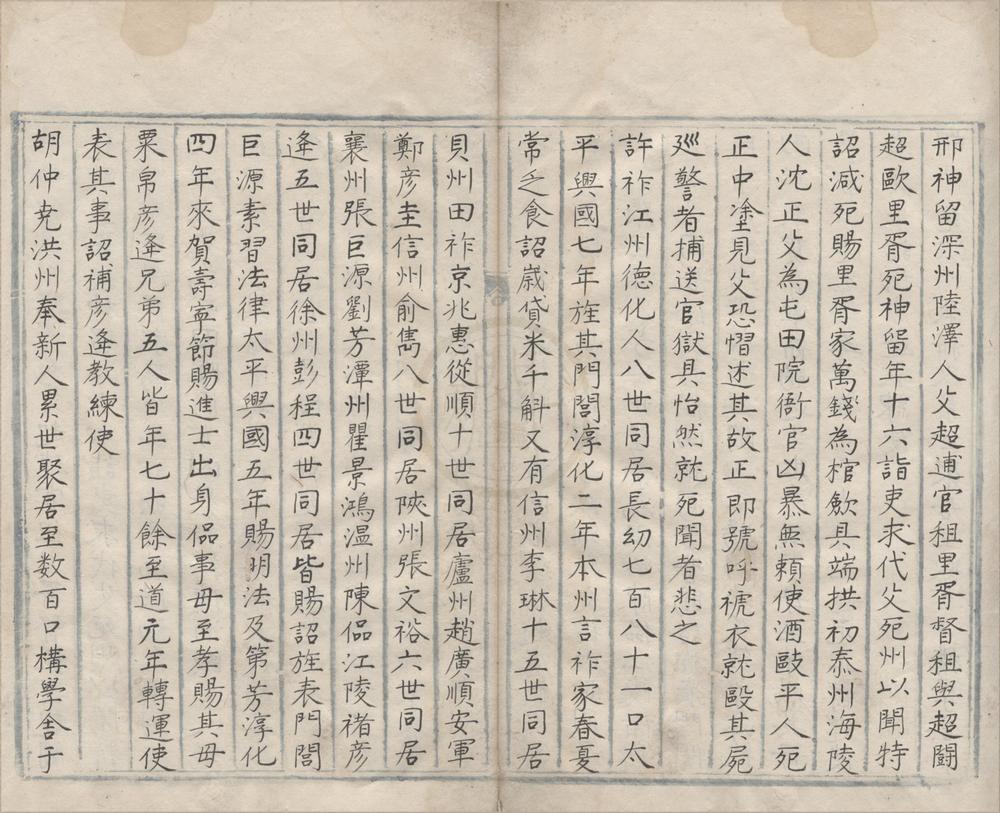 邢神留深州陸澤人父超逋官租里胥督租與超鬪
超毆里胥死神留年十六詣吏求代父死州以聞特
詔減死賜里胥家萬錢為棺歛具端拱初泰州海陵
人沈正父為屯田院衙官凶暴無頼使酒敺平人死
正中塗見父恐慴述其故正即號呼褫衣就毆其屍
廵警者捕送官獄具怡然就死聞者悲之
許祚江州德化人八世同居長幼七百八十一口太
平興國七年旌其門閭淳化二年本州言祚家春夏
常乏食詔歲貸米千斛又有信州李琳十五世同居
貝州田祚京兆惠從順十世同居廬州趙廣順安軍
鄭彦圭信州俞雋八世同居陝州張文裕六世同居
襄州張巨源劉芳潭州瞿景鴻温州陳侃江陵禇彦
逄五世同居徐州彭程四世同居皆賜詔旌表門閭
巨源素習法律太平興國五年賜明法及第芳淳化
四年來賀壽寧節賜進士出身侃事母至孝賜其母
粟帛彦逄兄弟五人皆年七十餘至道元年轉運使
表其事詔補彦逄教練使
胡仲尭洪州奉新人累世聚居至数百口構學舎于